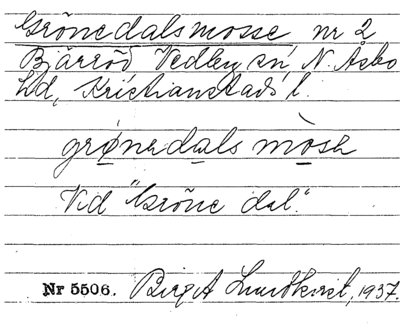 Grönedalsmosse nr 2
Bjärröd Vedby sn N. Åsbo
hd, Kristianstads l.
grønadals mòsa
Vid "Gröne dal".
Nr 5506. Birgit Lundkvist, 1937.